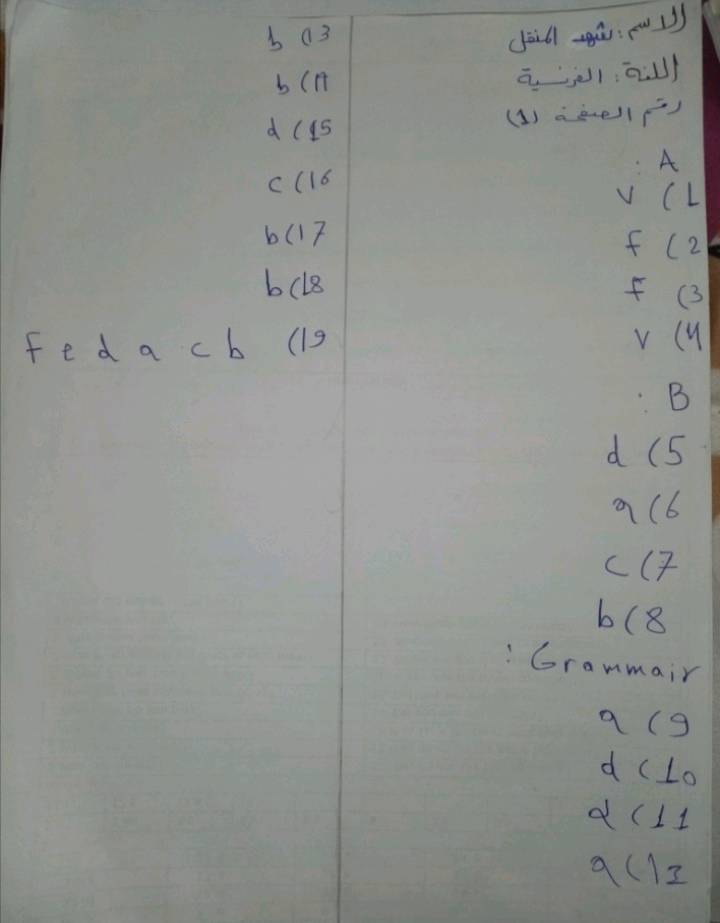 الاسم: شهد المنقل
اللغة: الفرنسية
رقم الصفحة (1)
A :
1) v
2) f
3) f
4) v
B :
5) d
6) a
7) c
8) b
Grammair :
9) a
10) d
11) d
12) a
13) b
14) b
15) d
16) c
17) b
18) b
19) b c a d e f